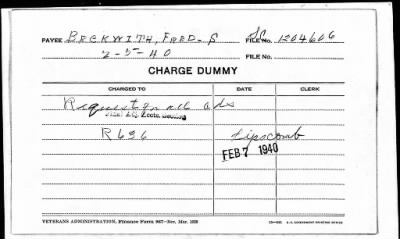 PAYEE BECKWITH, FRED. S FILE NO. SC 1204606
2-5-40 FILE NO.
CHARGE DUMMY
CHARGED TO DATE CLERK
Request for all Ads
R 696 Lipscomb
FEB 7 1940
VETERANS ADMINISTRATION, Finance Form
U. S. GOVERNMENT PRINTING OFFICE